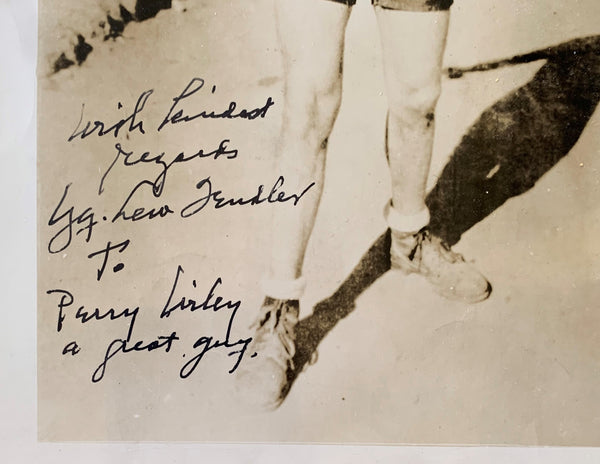 With kindest
regards
Yg. Lew Tendler
To
Perry
a great guy.